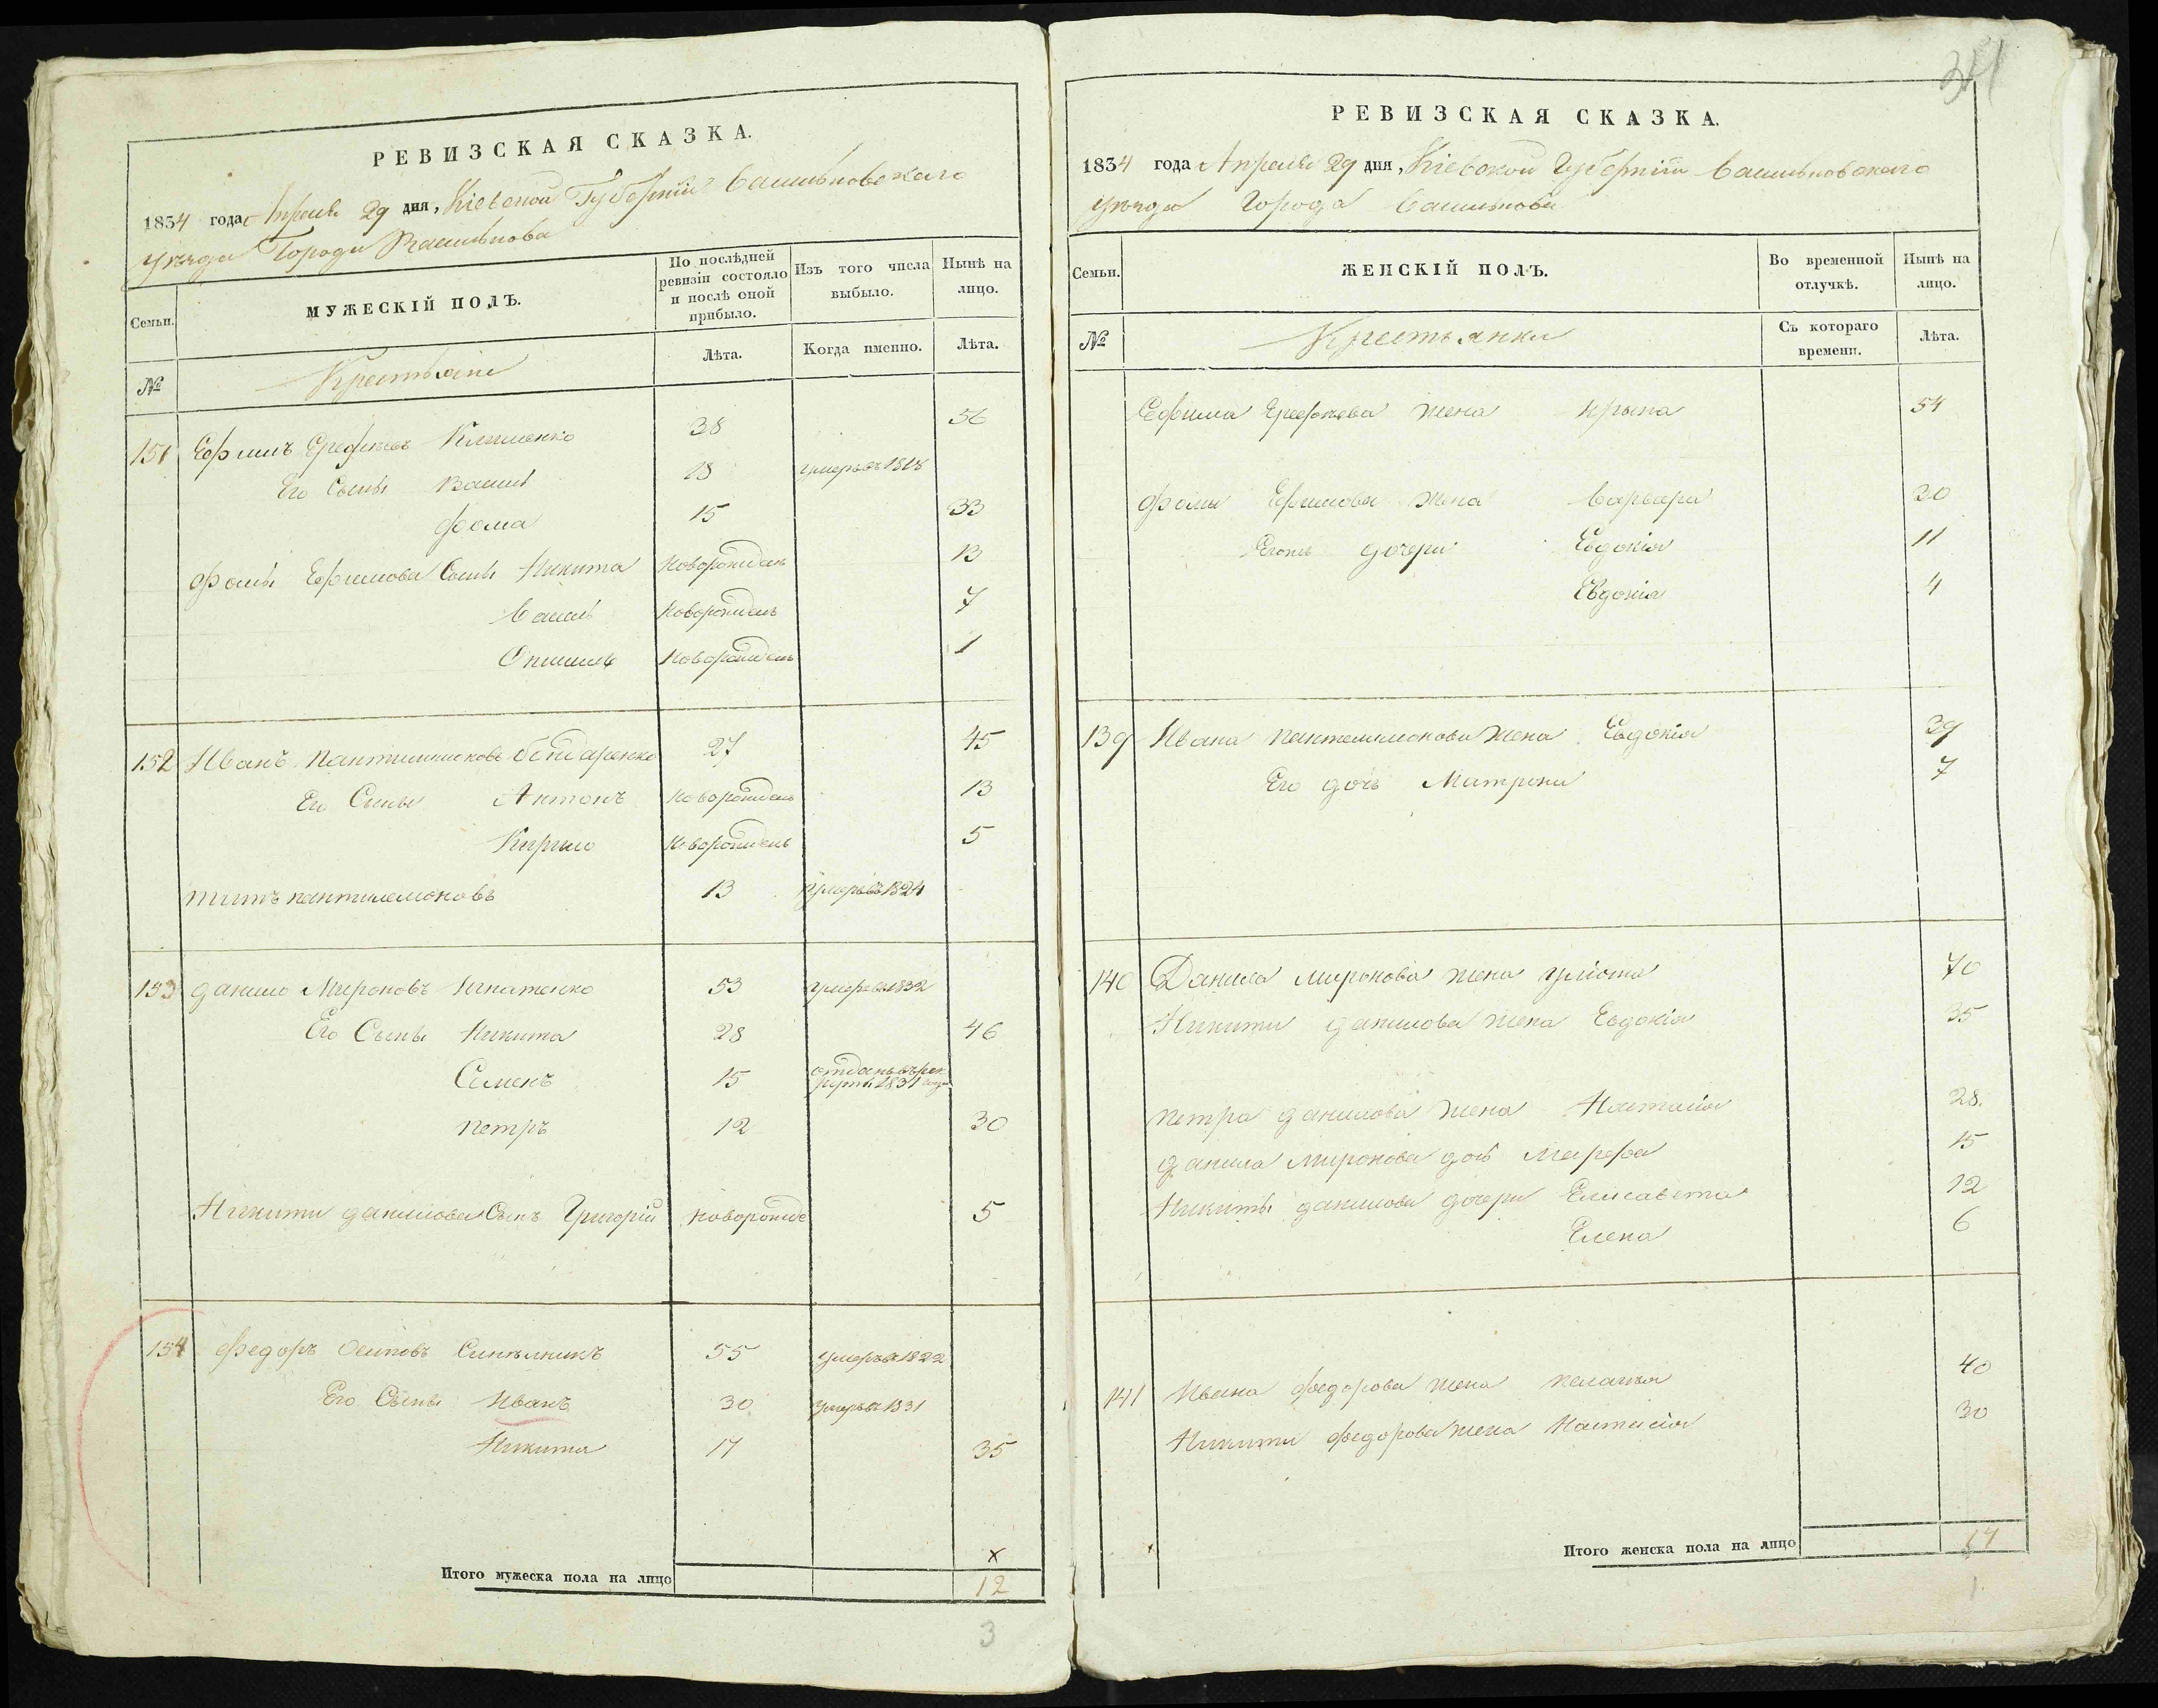 РЕВИЗСКАЯ СКАЗКА.
1834 года Апреля 29 дня, Кіевской Губерніи Васильковскаго
уѣзда Города Василькова
Семьи.
МУЖЕСКІЙ ПОЛЪ.
По послѣдней ревизіи состояло и послѣ оной прибыло.
Изъ того числа выбыло.
Нынѣ на лицо.
№
Крестьяне
Лѣта.
Когда именно.
Лѣта.
151 Ефимъ Клименко 38 56
Его Сыны Василь 18 умеръ въ 1818
Фома 15 33
Фомы Ефимова Сыны Никита Новорожденъ 13
Василь Новорожденъ 7
Новорожденъ 1
152 Иванъ Бондаренко 27 45
Его Сыны Антонъ Новорожденъ 13
Кирило Новорожденъ 5
Титъ пантилемоновъ 13 умеръ въ 1824
153 Данило Мироновъ Игнатенко 53 умеръ въ 1832
Его Сыны Никита 28 46
Семенъ 15 отданъ въ рек
руты 1831 года
Петръ 12 30
Никиты данилова Сынъ Григорій новорожде 5
154 Федоръ Осиповъ 55 умеръ въ 1822
Его Сыны Иванъ 30 умеръ въ 1831
Никита 17 35
х
Итого мужеска пола на лицо 12
3
РЕВИЗСКАЯ СКАЗКА.
1834 года Апреля 29 дня, Кіевской Губерніи Васильковскаго
уѣзда Города Василькова
Семьи.
ЖЕНСКІЙ ПОЛЪ.
Во временной отлучкѣ.
Нынѣ на лицо.
№
Крестьянки
Съ котораго времени.
Лѣта.
Ефима жена Ирына 54
Фомы Ефимова жена Варвара 30
дочери Евдокія 11
Евдокія 4
139 Ивана пантелимонова жена Евдокія 39
Его дочь Матрона 7
140 Данила миронова жена уліяна 70
Никиты данилова жена Евдокія 35
петра данилова жена Настасія 28.
данила миронова дочь Марфа 15
Никиты данилова дочери Елисавета 12
Елена 6
141 Ивана федорова жена пелагия 40
Никиты федорова жена Настасія 30
Итого женска пола на лицо 14